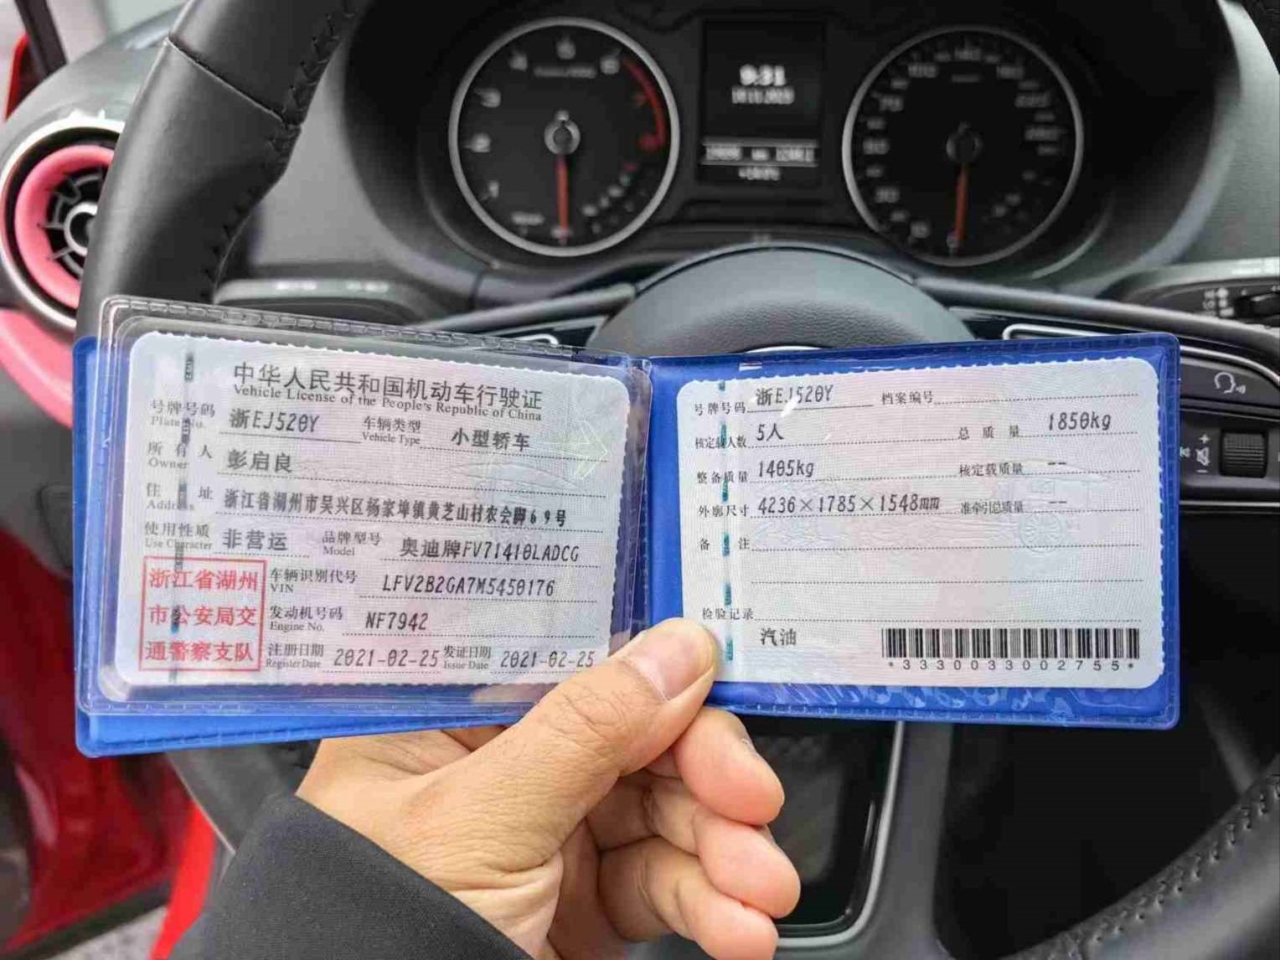 中华人民共和国机动车行驶证
Vehicle License of the People's Republic of China
号牌号码 浙EJ520Y 车辆类型 小型轿车
Plate No. Vehicle Type
所有人 彭启良
Owner
住址 浙江省湖州市吴兴区杨家埠镇黄芝山村农会脚69号
Address
使用性质 非营运 品牌型号 奥迪牌FV71410LADCG
Use Character Model
浙江省湖州
市公安局交
通警察支队
车辆识别代号 LFV2B2GA7M5450176
VIN
发动机号码 NF7942
Engine No.
注册日期 2021-02-25 发证日期 2021-02-25
Register Date Issue Date
号牌号码 浙EJ520Y 档案编号
核定载人数 5人 总质量 1850kg
整备质量 1405kg 核定载质量 --
外廓尺寸 4236×1785×1548mm 准牵引总质量 --
备注
检验记录
汽油
*3330033002755*
9:31
1
2
3
4
5
6
7